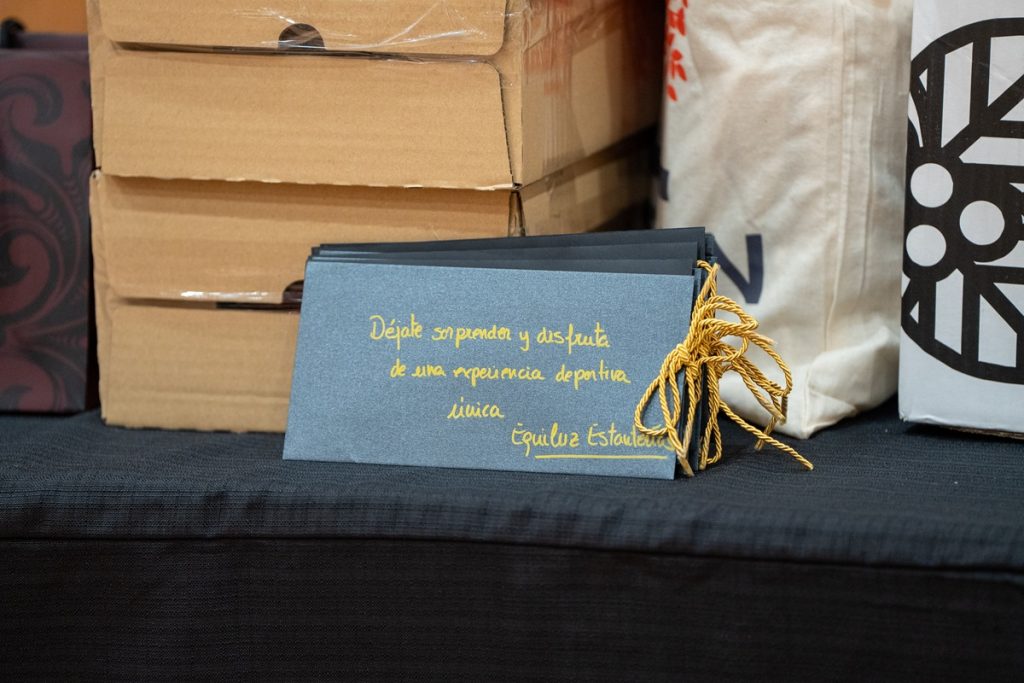 Déjate sorprender y disfruta
de una experiencia deportiva
única
Equiluz Estantería
N